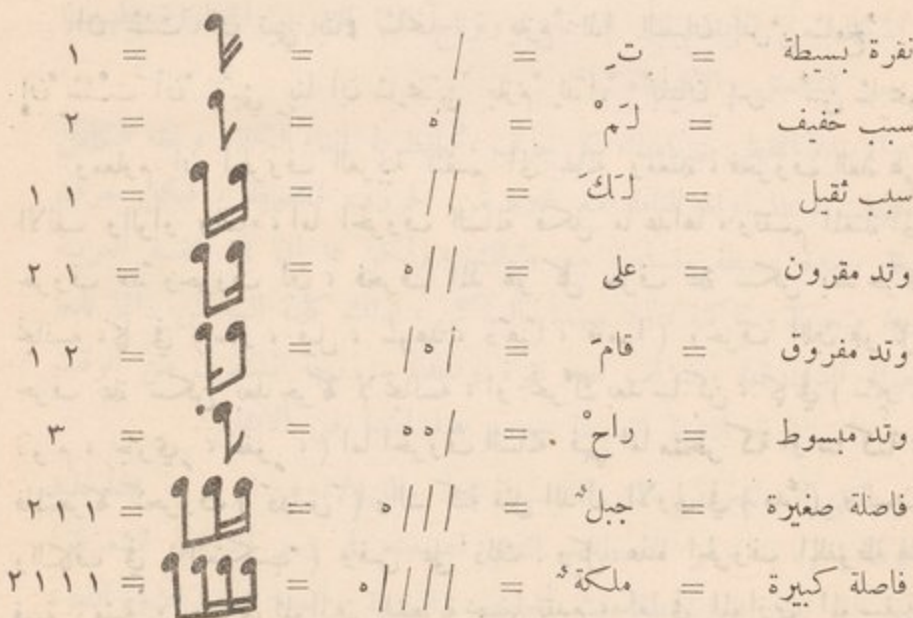 نقرة بسيطة = تَ = / = = ١
سبب خفيف = لَمْ = /ه = = ٢
سبب ثقيل = لَكَ = // = = ١ ١
وتد مقرون = على = //ه = = ١ ٢
وتد مفروق = قامَ = /ه/ = = ٢ ١
وتد مبسوط = راحْ = /ه ه = = ٣
فاصلة صغيرة = جبلٌ = ///ه = = ١ ١ ٢
فاصلة كبيرة = ملكةٌ = ////ه = = ١ ١ ١ ٢